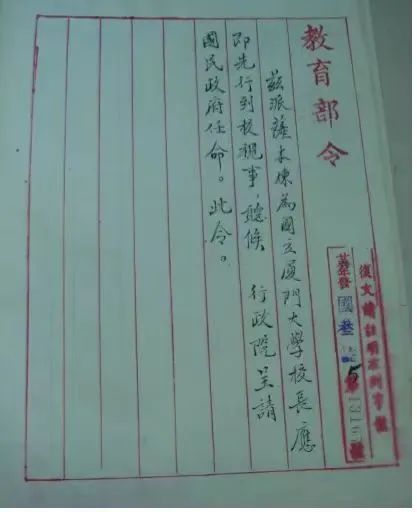 教育部令
復文請註明
發國叁
5
茲派薩本棟為國立廈門大學校長應
即先行到校視事，聽候 行政院呈請
國民政府任命。此令。